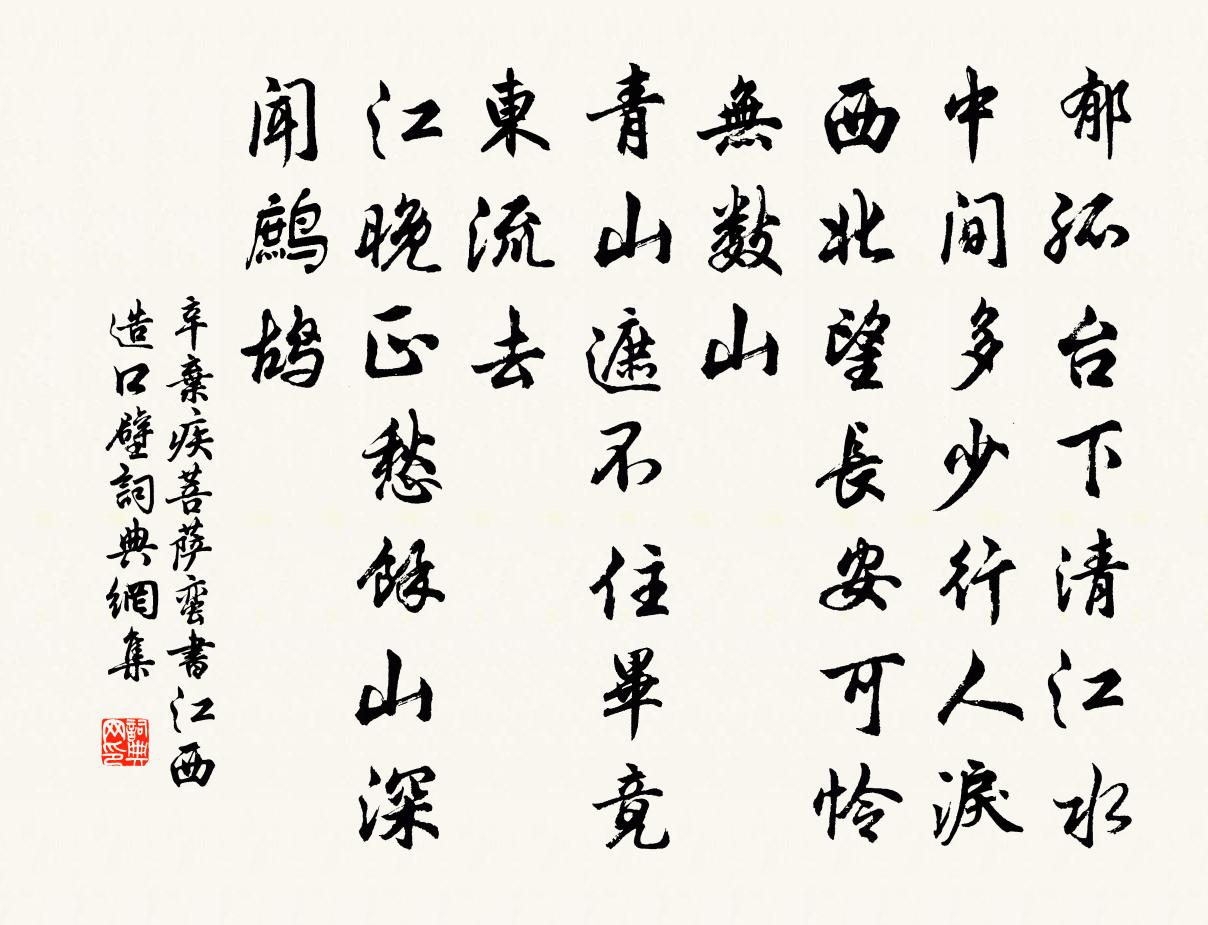 郁孤台下清江水
中间多少行人淚
西北望長安可怜
無数山
青山遮不住畢竟
東流去
江晚正愁餘山深
闻鹧鸪
辛棄疾菩萨蛮書江西
造口壁詞典網集
詞典网印